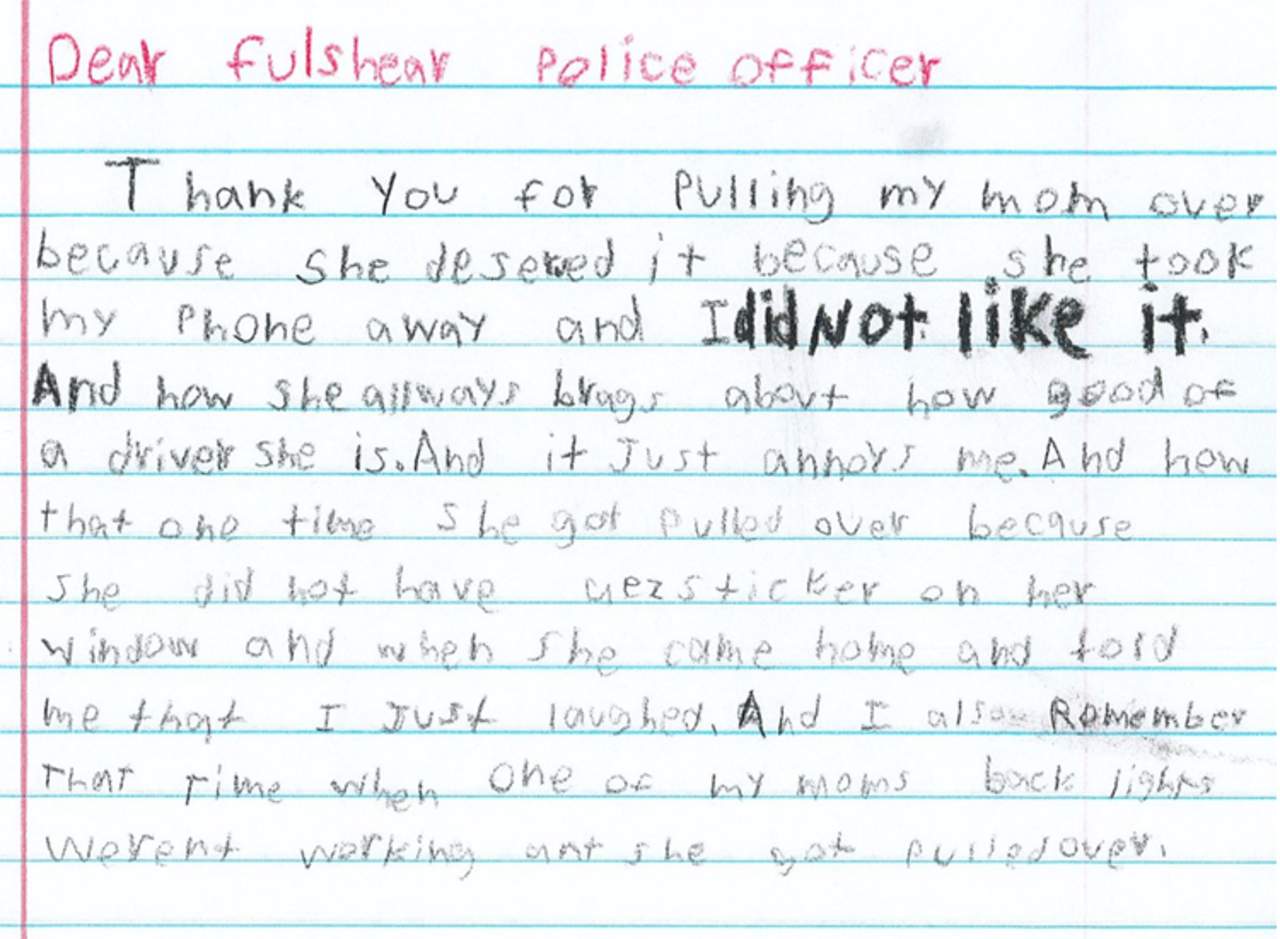 Dear fulshear Police officer
Thank You for Pulling my mom over
because she deserved it because she took
my Phone away and I did Not like it.
And how she allways brags about how good of
a driver she is. And it Just annoys me. And how
that one time she got Pulled over because
she did not have sticker on her
window and when she came home and told
me that I Just laughed. And I also Remember
That Time when one of my moms back lights
werent working ant she got pulled over.